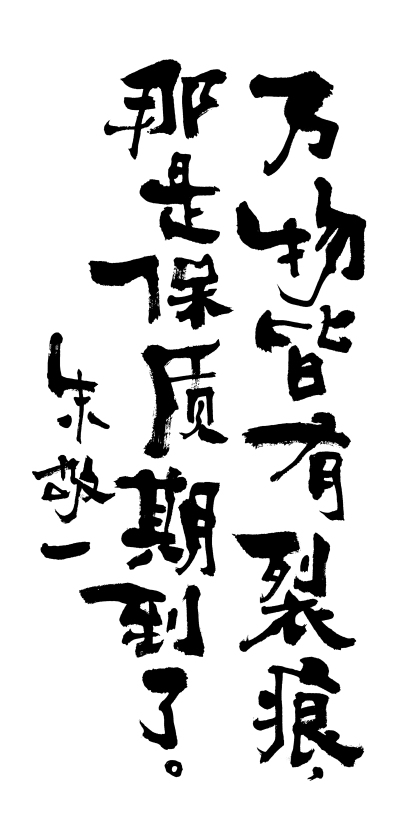 万物皆有裂痕，
那是保质期到了。
朱敬一